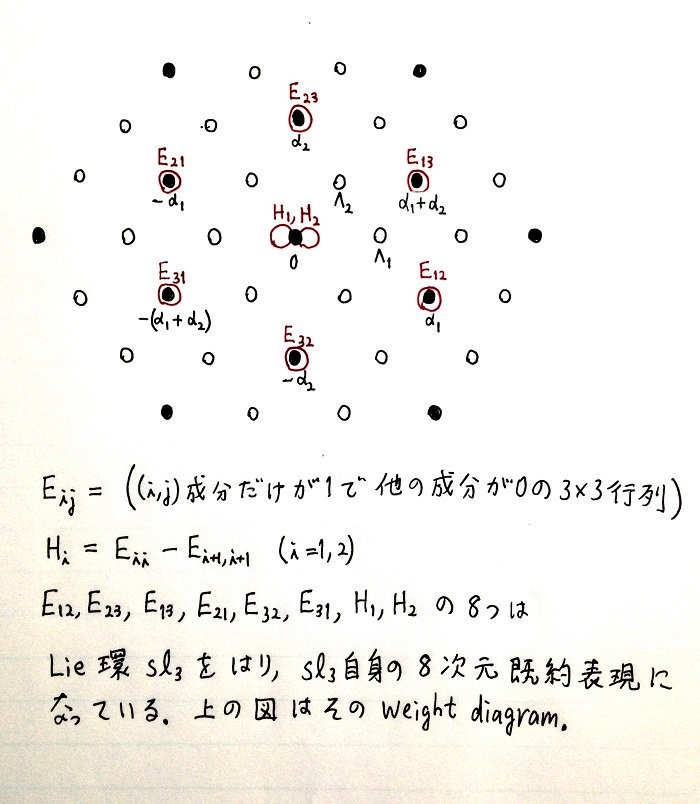 E₂₃
α₂
E₂₁
-α₁
E₁₃
α₁+α₂
Λ₂
H₁, H₂
0
Λ₁
E₃₁
-(α₁+α₂)
E₁₂
α₁
E₃₂
-α₂
Eᵢⱼ = ((i,j)成分だけが1で他の成分が0の3×3行列)
Hᵢ = Eᵢᵢ - Eᵢ₊₁,ᵢ₊₁ (i=1,2)
E₁₂, E₂₃, E₁₃, E₂₁, E₃₂, E₃₁, H₁, H₂ の 8つは
Lie 環 sl₃ をはり, sl₃自身の 8次元既約表現に
なっている. 上の図はその weight diagram.